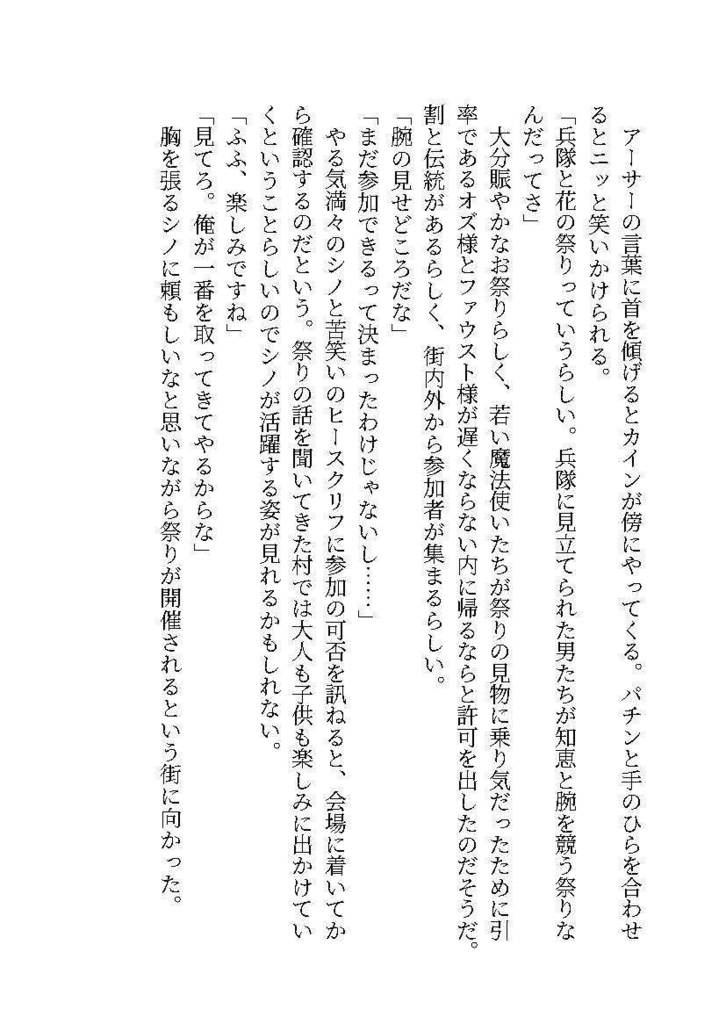 アーサーの言葉に首を傾げるとカインが傍にやってくる。パチンと手のひらを合わせ
るとニッと笑いかけられる。
「兵隊と花の祭りっていうらしい。兵隊に見立てられた男たちが知恵と腕を競う祭りな
んだってさ」
大分賑やかなお祭りらしく、若い魔法使いたちが祭りの見物に乗り気だったために引
率であるオズ様とファウスト様が遅くならない内に帰るならと許可を出したのだそうだ。
割と伝統があるらしく、街内外から参加者が集まるらしい。
「腕の見せどころだな」
「まだ参加できるって決まったわけじゃないし……」
やる気満々のシノと苦笑いのヒースクリフに参加の可否を訊ねると、会場に着いてか
ら確認するのだという。祭りの話を聞いてきた村では大人も子供も楽しみに出かけてい
くということらしいのでシノが活躍する姿が見れるかもしれない。
「ふふ、楽しみですね」
「見てろ。俺が一番を取ってきてやるからな」
胸を張るシノに頼もしいなと思いながら祭りが開催されるという街に向かった。